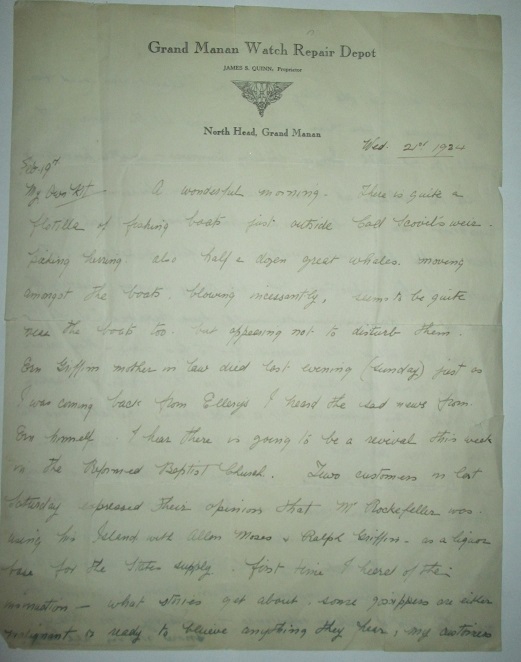 Grand Manan Watch Repair Depot
JAMES S. QUINN, Proprietor
North Head, Grand Manan
Wed. 21st 1924
Feb 19th
My Own Kit — A wonderful morning. There is quite a
flotilla of fishing boats just outside Calf Scovel's weir.
fishing herring also half a dozen great whales. moving
amongst the boats. blowing incessantly, seems to be quite
near the boats too. but appearing not to disturb them.
Ern Griffin mother in law died last evening (Sunday) just as
I was coming back from Ellerys I heard the sad news from
Ern himself. I hear there is going to be a revival this week
in the Reformed Baptist Church. Two customers in last
Saturday expressed their opinion that Mr Rockefeller was
using his Island with Allan Moses & Ralph Griffin. as a liquor
base for the States supply. first time I heard of their
— what stories get about. some gossippers are either
malignant or ready to believe anything they hear, my customers